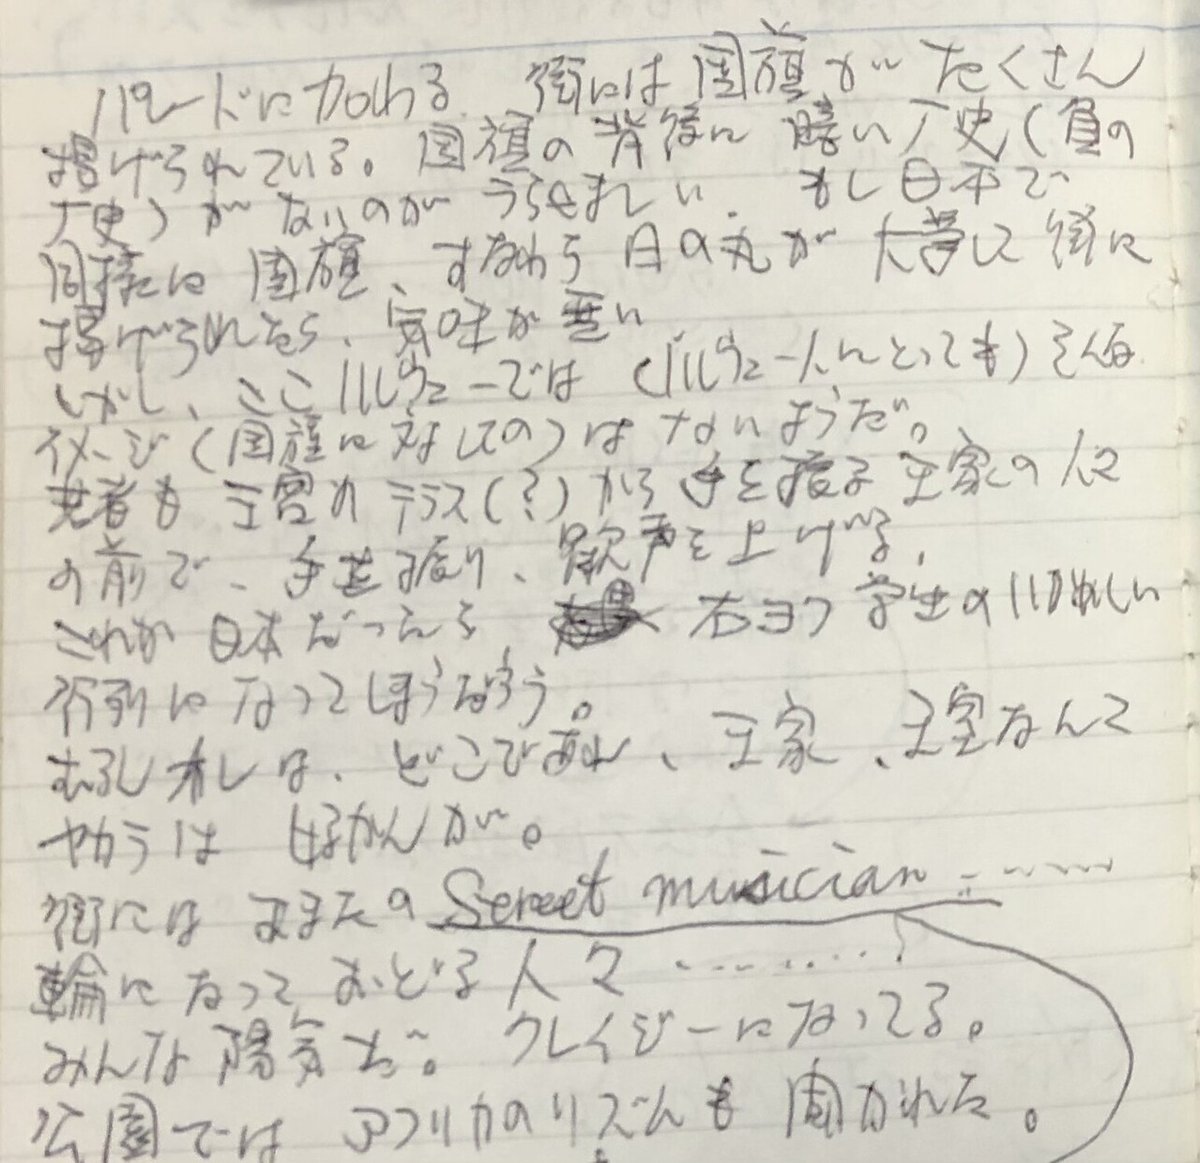 パレードに加わる 街には国旗が たくさん
掲げられている。国旗の背後に 暗い歴史(負の
歴史)がないのが うらやましい、もし日本で
同様に 国旗、すなわち 日の丸が 大挙して 街に
掲げられたら、気味が悪い
しかし、ここノルウェーでは(ノルウェー人にとっても)そんな
イメージ(国旗に対しての)は ないようだ。
若者も 王宮の テラス(?)から 手を振る 王家の人々
の前で、手を振り、歓声を上げる、
これが 日本だったら 右ヨク 学生のいかめしい
行列になってしまうだろう。
むろん オレは、どこであれ、王家、王室なんて
ヤカラは 好かんが。
街には あまたの Street musician ……
輪になって おどる 人々 ………
みんな 陽気だ。クレイジーになってる。
公園では アフリカのリズムも 聞かれた。